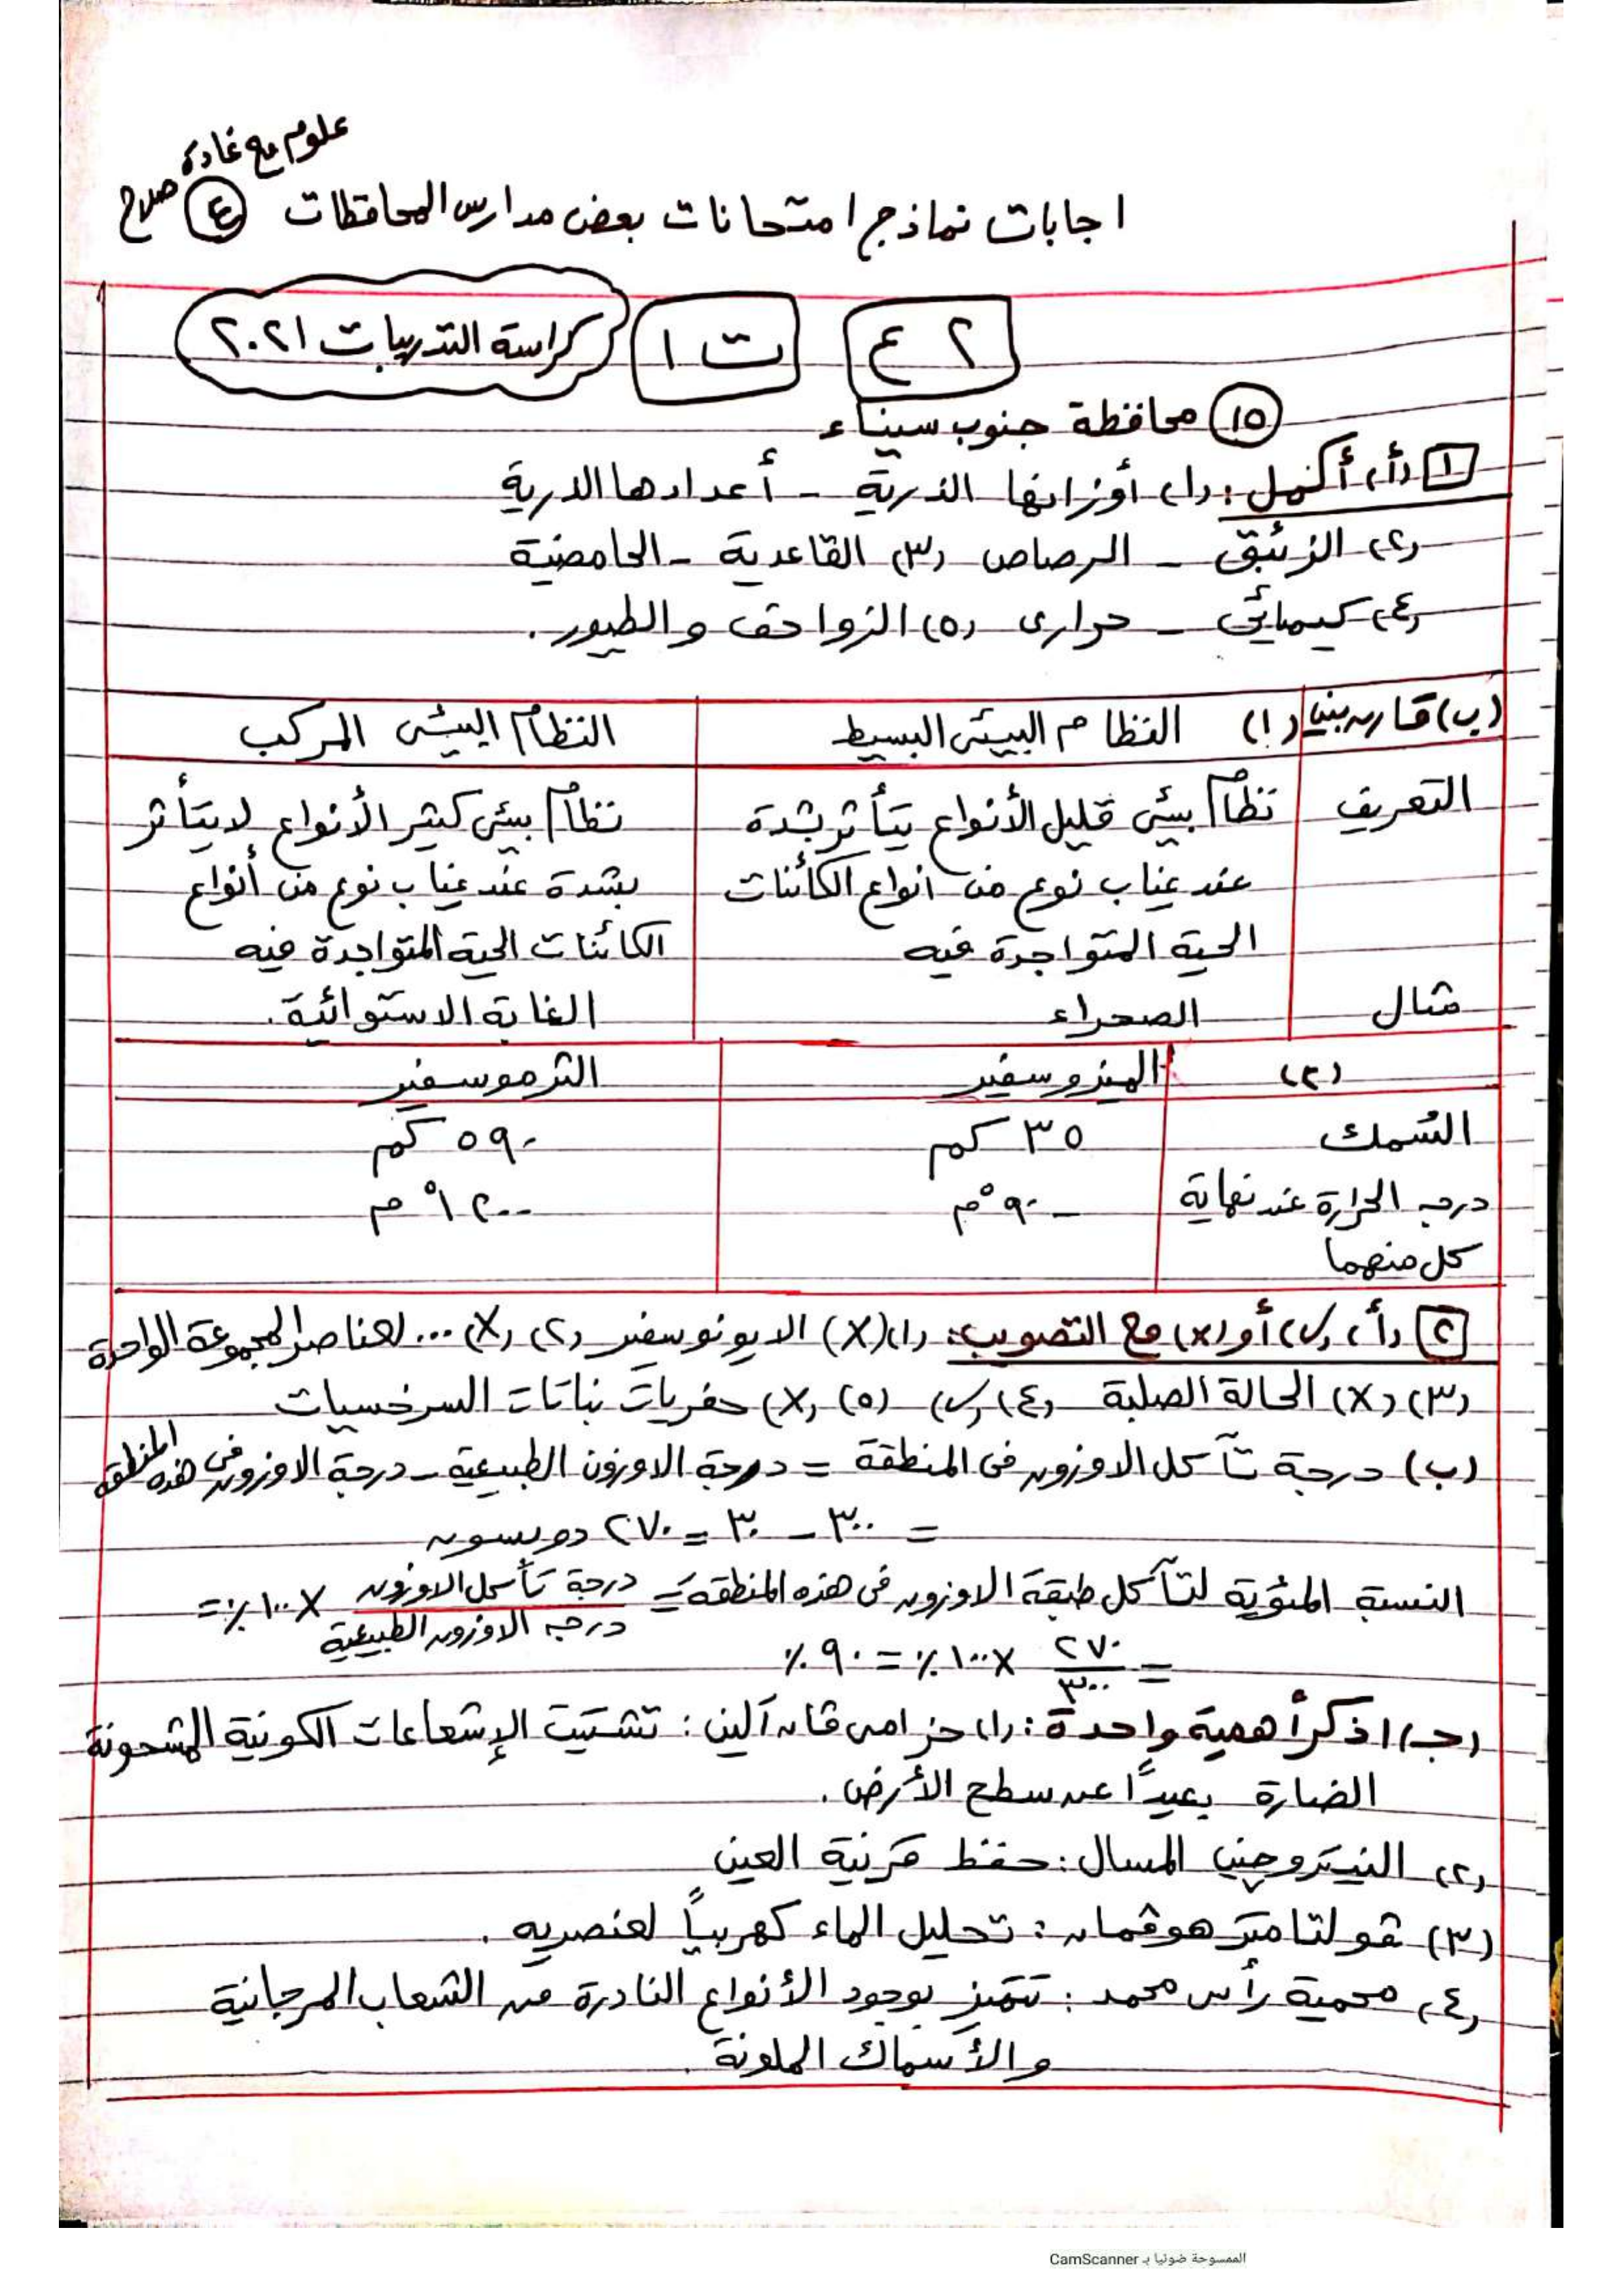 علوم مع غادة صلاح
اجابات نماذج امتحانات بعض مدارس المحافظات (٤)
٢ ع ت ١ كراسة التدريبات ٢٠٢١
(١٥) محافظة جنوب سيناء
١ (أ) أكمل: (١) أوزانها الذرية - أعدادها الذرية
(٢) الزئبق - الرصاص (٣) القاعدية - الحامضية
(٤) كيميائى - حرارى (٥) الزواحف والطيور.
(ب) قارن بين (١) النظام البيئى البسيط النظام البيئى المركب
التعريف نظام بيئى قليل الأنواع يتأثر بشدة نظام بيئى كثير الأنواع لا يتأثر
عند غياب نوع من أنواع الكائنات بشدة عند غياب نوع من أنواع
الحية المتواجدة فيه الكائنات الحية المتواجدة فيه
مثال الصحراء الغابة الاستوائية.
(٢) الميزوسفير الثرموسفير
السُمك ٣٥ كم ٥٩٠ كم
درجه الحرارة عند نهاية -٩٠°م ١٢٠٠°م
كل منهما
٢ (أ) (✓) أو (x) مع التصويب: (١) (X) الايونوسفير (٢) (X) ... لعناصر المجموعة الواحدة
(٣) (X) الحالة الصلبة (٤) (✓) (٥) (X) حفريات نباتات السرخسيات
(ب) درجة تآكل الاوزون فى المنطقة = درجة الاوزون الطبيعية - درجة الاوزون فى هذه المنطقة
= ٣٠٠ - ٣٠ = ٢٧٠ دوبسون
النسبة المئوية لتآكل طبقة الاوزون فى هذه المنطقة = درجة تآكل الاوزون / درجه الاوزون الطبيعية X ١٠٠٪ =
= ٢٧٠ / ٣٠٠ X ١٠٠٪ = ٩٠٪
(جـ) اذكر أهمية واحدة: (١) حزامى ڤان آلين: تشتيت الإشعاعات الكونية المشحونة
الضارة بعيدًا عن سطح الأرض.
(٢) النيتروجين المسال: حفظ قرنية العين
(٣) ڤولتامتر هوڤمان: تحليل الماء كهربيًا لعنصريه.
(٤) محمية رأس محمد: تتميز بوجود الأنواع النادرة من الشعاب المرجانية
والأسماك الملونة
الممسوحة ضوئيا بـ CamScanner